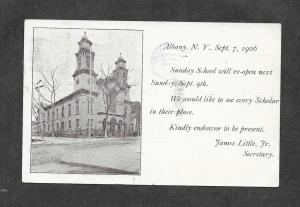 Albany, N. Y., Sept. 7, 1906
Sunday School will re-open next
Sunday, Sept. 9th.
We would like to see every Scholar
in their place.
Kindly endeavor to be present.
James Little, Jr.
Secretary.